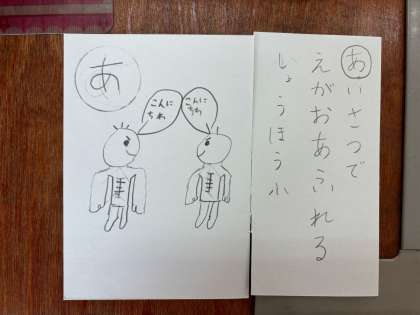 あ
こんに
ちわ
こんに
ちわ
あいさつで
えがおあふれる
じょうほう小